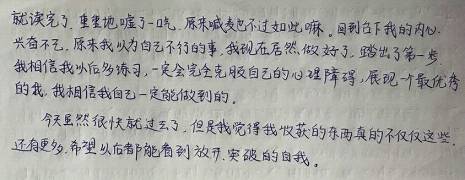 就读完了，重重地嘘了一口气，原来喊麦也不过如此嘛。回到台下我的内心
兴奋不已，原来我以为自己不行的事，我现在居然做好了，踏出了第一步，
我相信我以后多练习，一定会完全克服自己的心理障碍，展现一个最优秀
的我，我相信我自己一定能做到的。
今天虽然很快就过去了，但是我觉得我收获的东西真的不仅仅这些，
还有更多，希望以后都能看到放开、突破的自我。